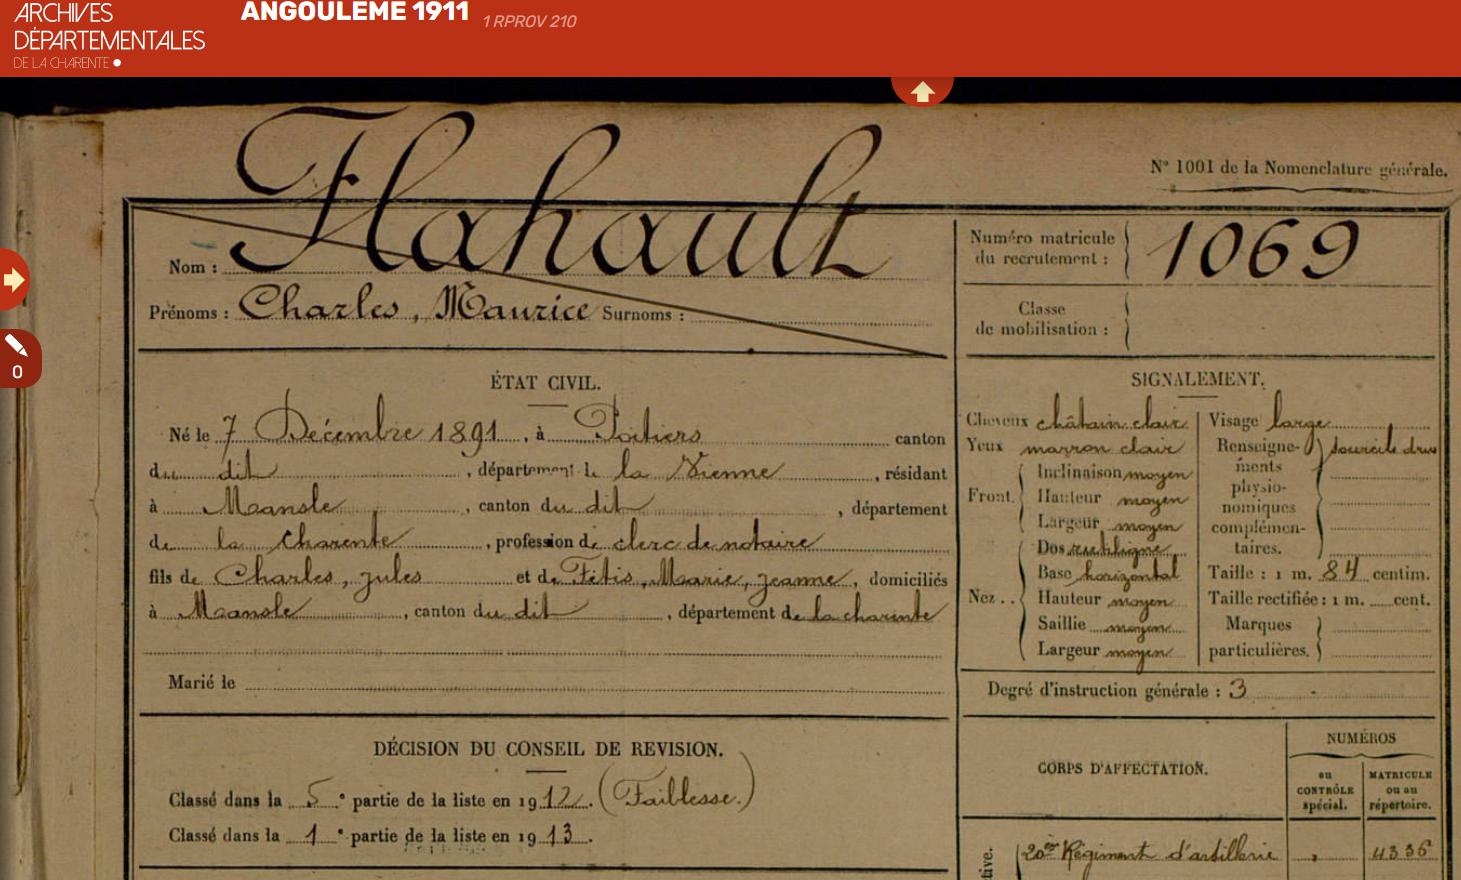 ARCHIVES
DÉPARTEMENTALES
DE LA CHARENTE
ANGOULEME 1911 1 RPROV 210
0
N° 1001 de la Nomenclature générale.
Nom : Flahault
Prénoms : Charles, Maurice Surnoms :
Numéro matricule du recrutement : 1069
Classe de mobilisation :
ÉTAT CIVIL.
Né le 7 Décembre 1891, à Poitiers canton
du dit, département de la Vienne, résidant
à Mansle, canton du dit, département
de la Charente, profession de clerc de notaire
fils de Charles, Jules et de Fétis, Marie, Jeanne, domiciliés
à Mansle, canton du dit, département de la charente
Marié le
DÉCISION DU CONSEIL DE REVISION.
Classé dans la 5e partie de la liste en 1912. (Faiblesse.)
Classé dans la 1e partie de la liste en 1913.
SIGNALEMENT.
Cheveux châtain clair
Yeux marron clair
Front. Inclinaison moyen
Hauteur moyen
Largeur moyen
Nez.. Dos rectiligne
Base horizontal
Hauteur moyen
Saillie moyen
Largeur moyen
Visage large
Renseigne-
ments
physio-
nomiques
complémen-
taires. sourcils drus
Taille : 1 m. 84 centim.
Taille rectifiée : 1 m. cent.
Marques
particulières.
Degré d'instruction générale : 3
CORPS D'AFFECTATION.
NUMÉROS
au
CONTRÔLE
spécial.
MATRICULE
ou au
répertoire.
tive.
20e Régiment d'artillerie 4336